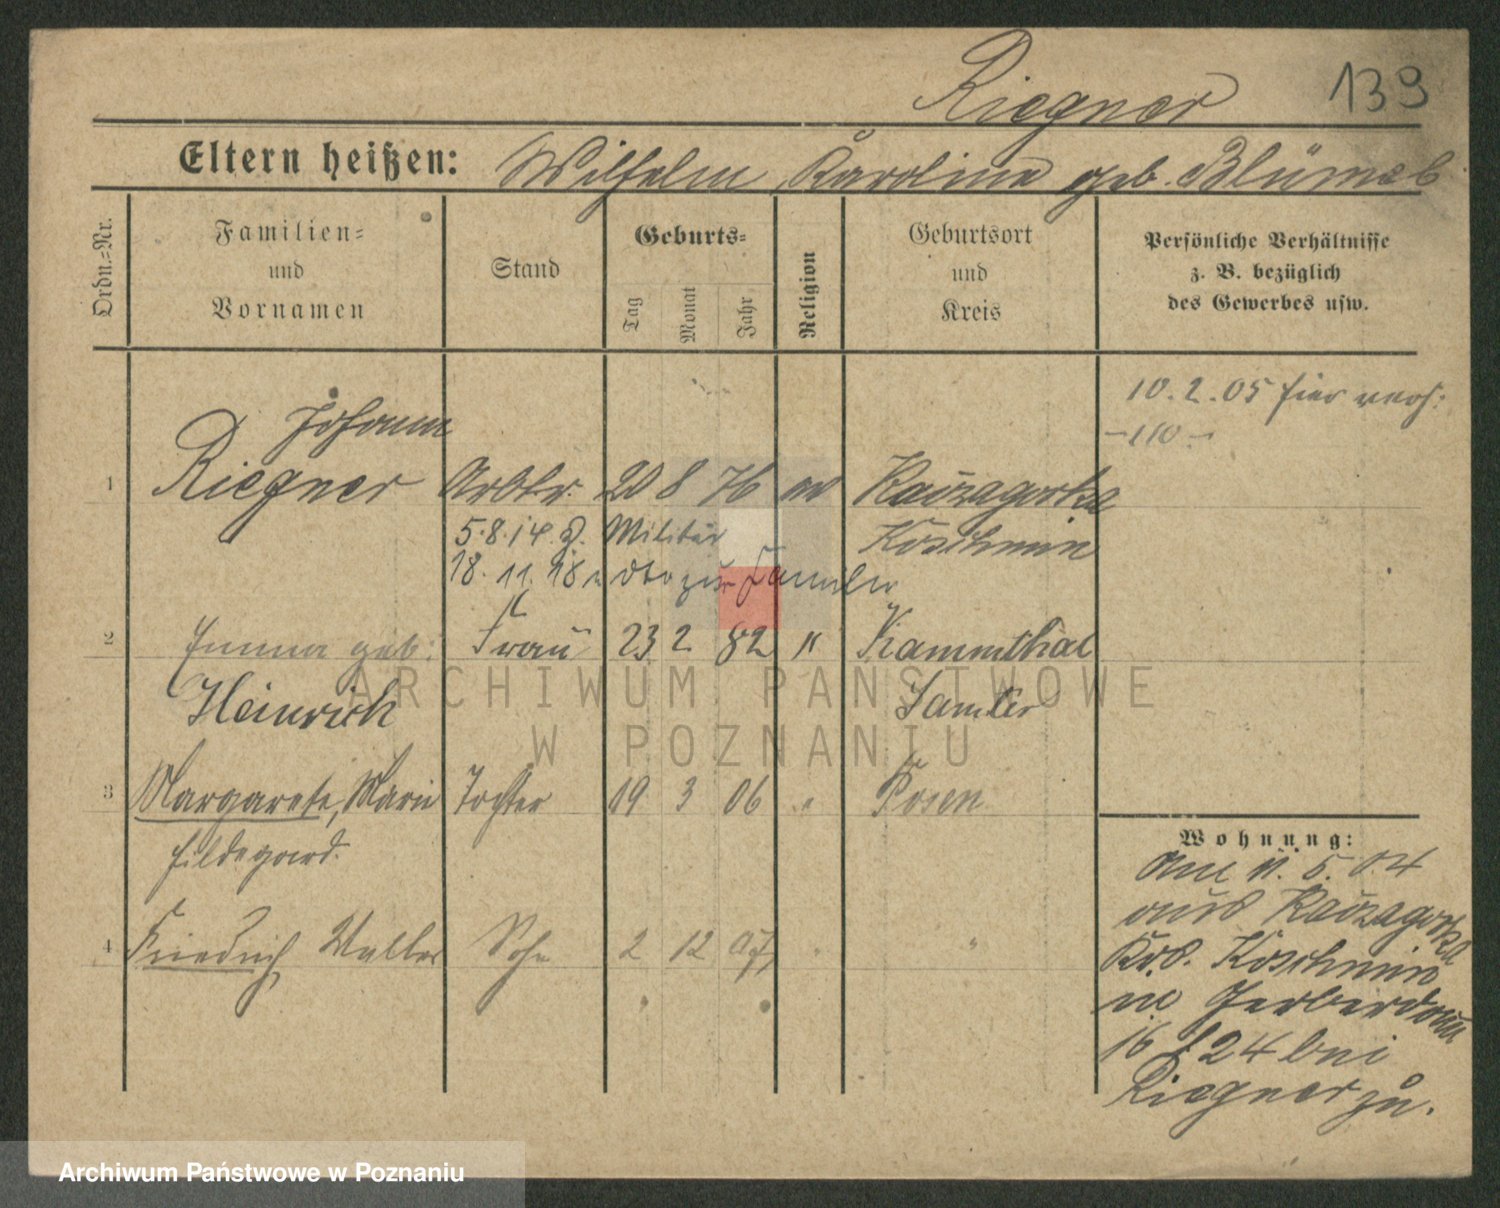 Riegner 139
Eltern heißen: Wilhelm, Karoline geb. Blümel
Ordn.=Nr.
Familien=
und
Vornamen
Stand
Geburts=
Tag
Monat
Jahr
Religion
Geburtsort
und
Kreis
Persönliche Verhältnisse
z. B. bezüglich
des Gewerbes usw.
10.2.05 hier verh:
Johann
1 Riegner Arbtr. 20 8 76 ev Kaizagorka
5.8.14 z. Militär Koschmin
18.11.18 zur Familie
2 Emma geb: Frau 23 2 82 " Kammthal
Heinrich
ARCHIWUM PAŃSTWOWE
W POZNANIU
3 Margarete, Marie Tochter 19 3 06 " Posen
Hildegard.
4 Friedrich Walter Sohn 2 12 07 " "
Wohnung:
Am 11.5.04
aus Kaizagorka
Krs. Koschmin
n. Gerberdamm
16 bei
Riegner zu.
Archiwum Państwowe w Poznaniu